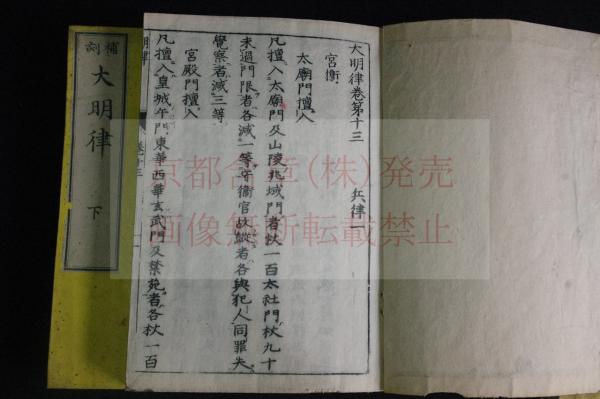 大明律卷第十三 兵律一
宮衛
太廟門擅入
凡擅入太廟門及山陵兆域門者杖一百太社門杖九十
未過門限者各減一等守衛官故縱者各與犯人同罪失
覺察者減三等
宮殿門擅入
凡擅入皇城午門東華西華玄武門及禁苑者各杖一百
大明律 下
京都合章(株)発売
画像無断転載禁止